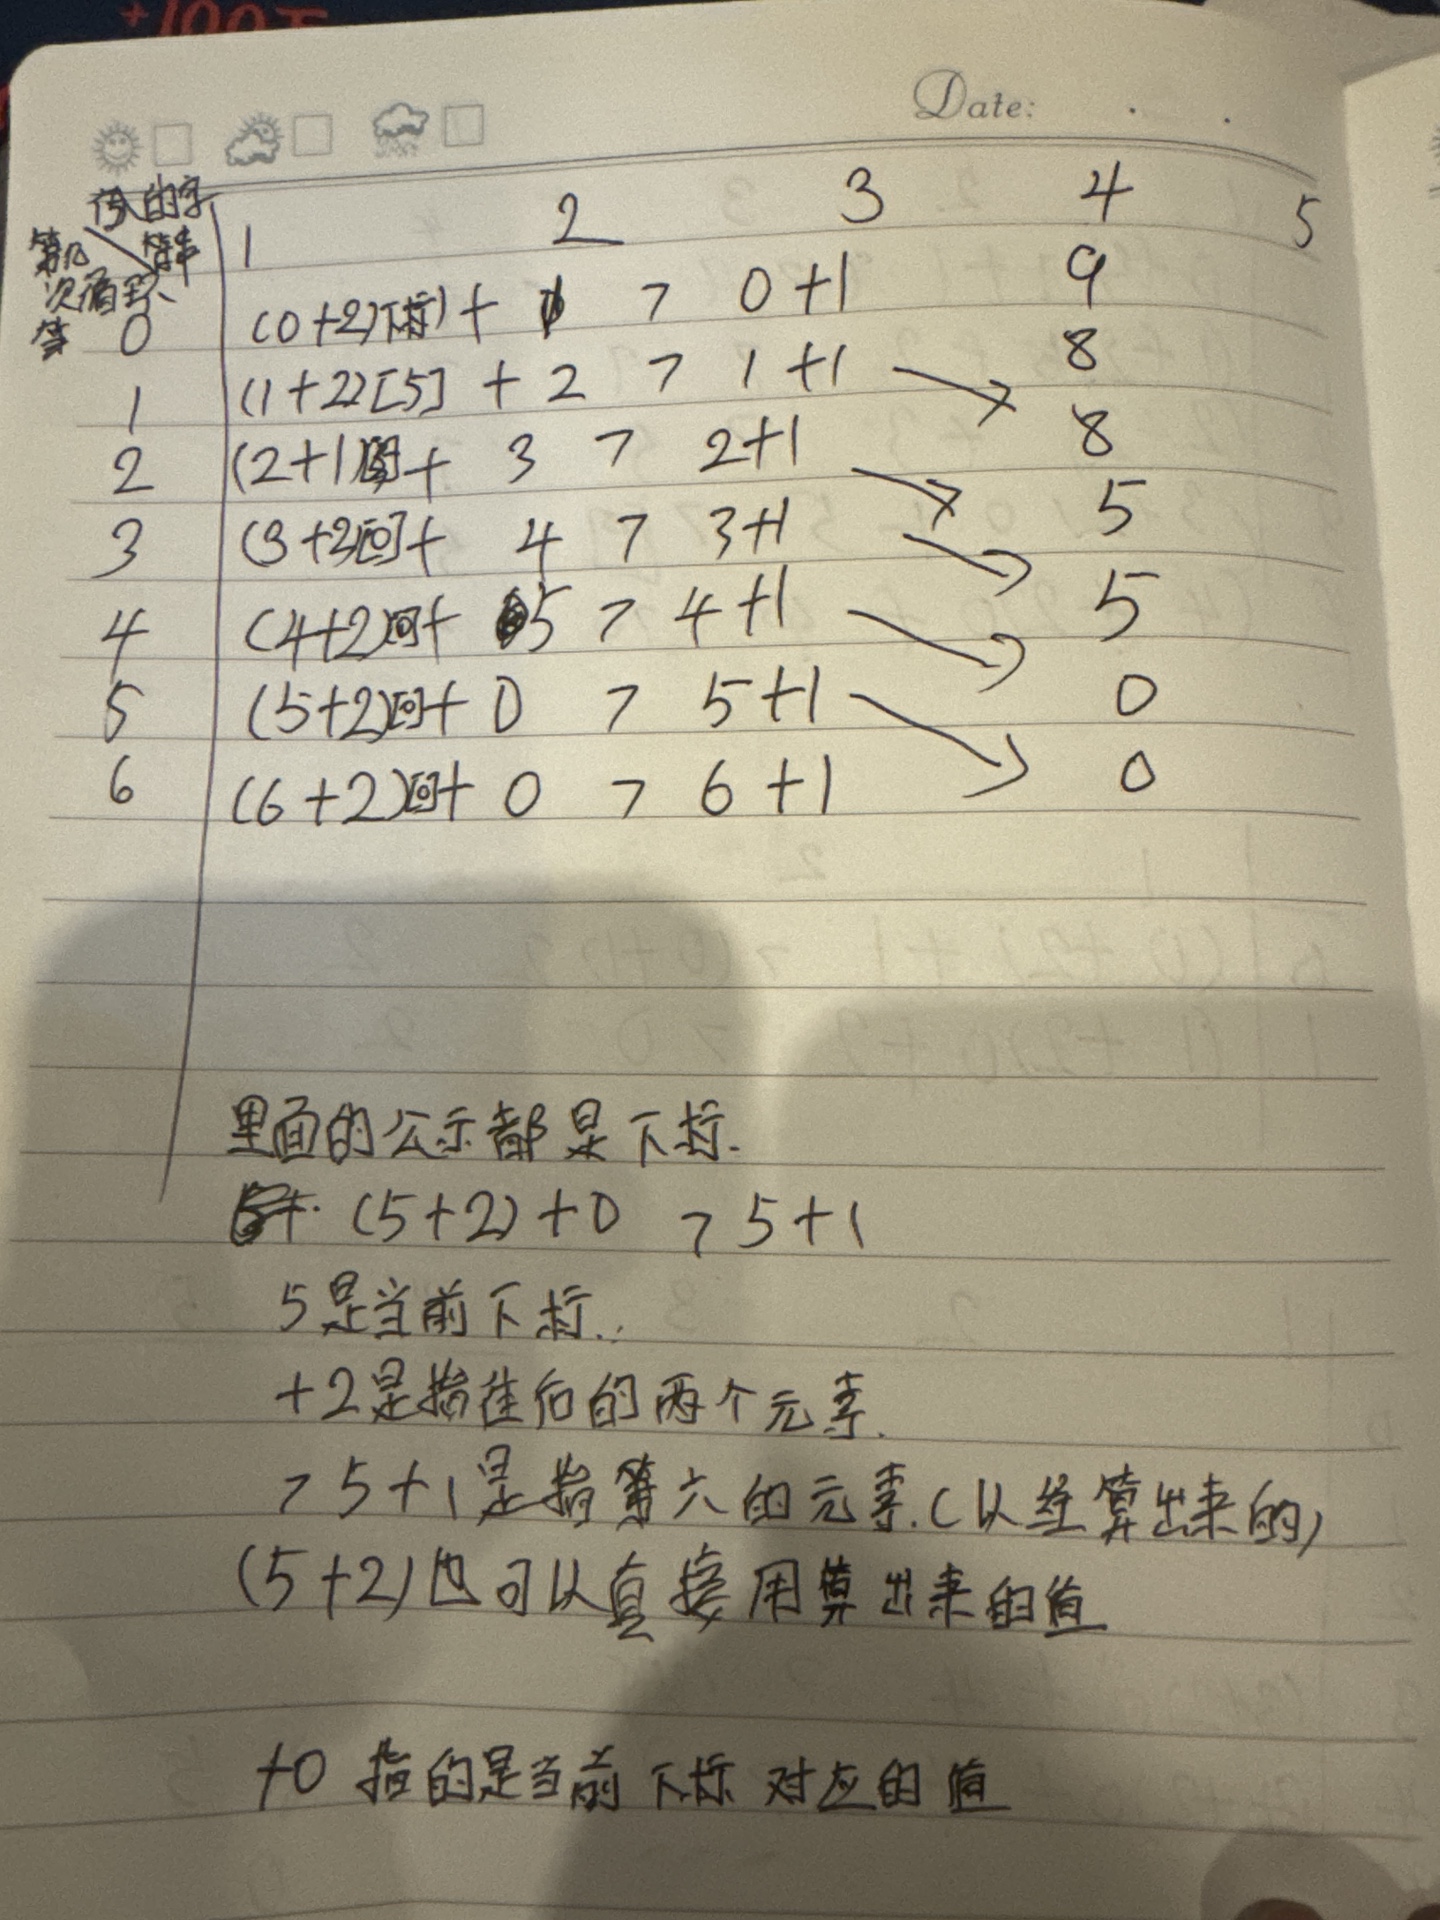 +100万
Date:
传入的字
符串
第几
次循环
1 2 3 4 5
0 (0+2)[下标] + 1 > 0+1 9
1 (1+2)[5] + 2 > 1+1 8
2 (2+1) + 3 > 2+1 8
3 (3+2)[0] + 4 > 3+1 5
4 (4+2)[0] + 5 > 4+1 5
5 (5+2)[0] + 0 > 5+1 0
6 (6+2)[0] + 0 > 6+1 0
里面的公示都是下标.
(5+2)+0 > 5+1
5是当前下标.
+2是指往后的两个元素.
> 5+1是指第六的元素.(以经算出来的)
(5+2)也可以直接用算出来的值
+0 指的是当前下标对应的值